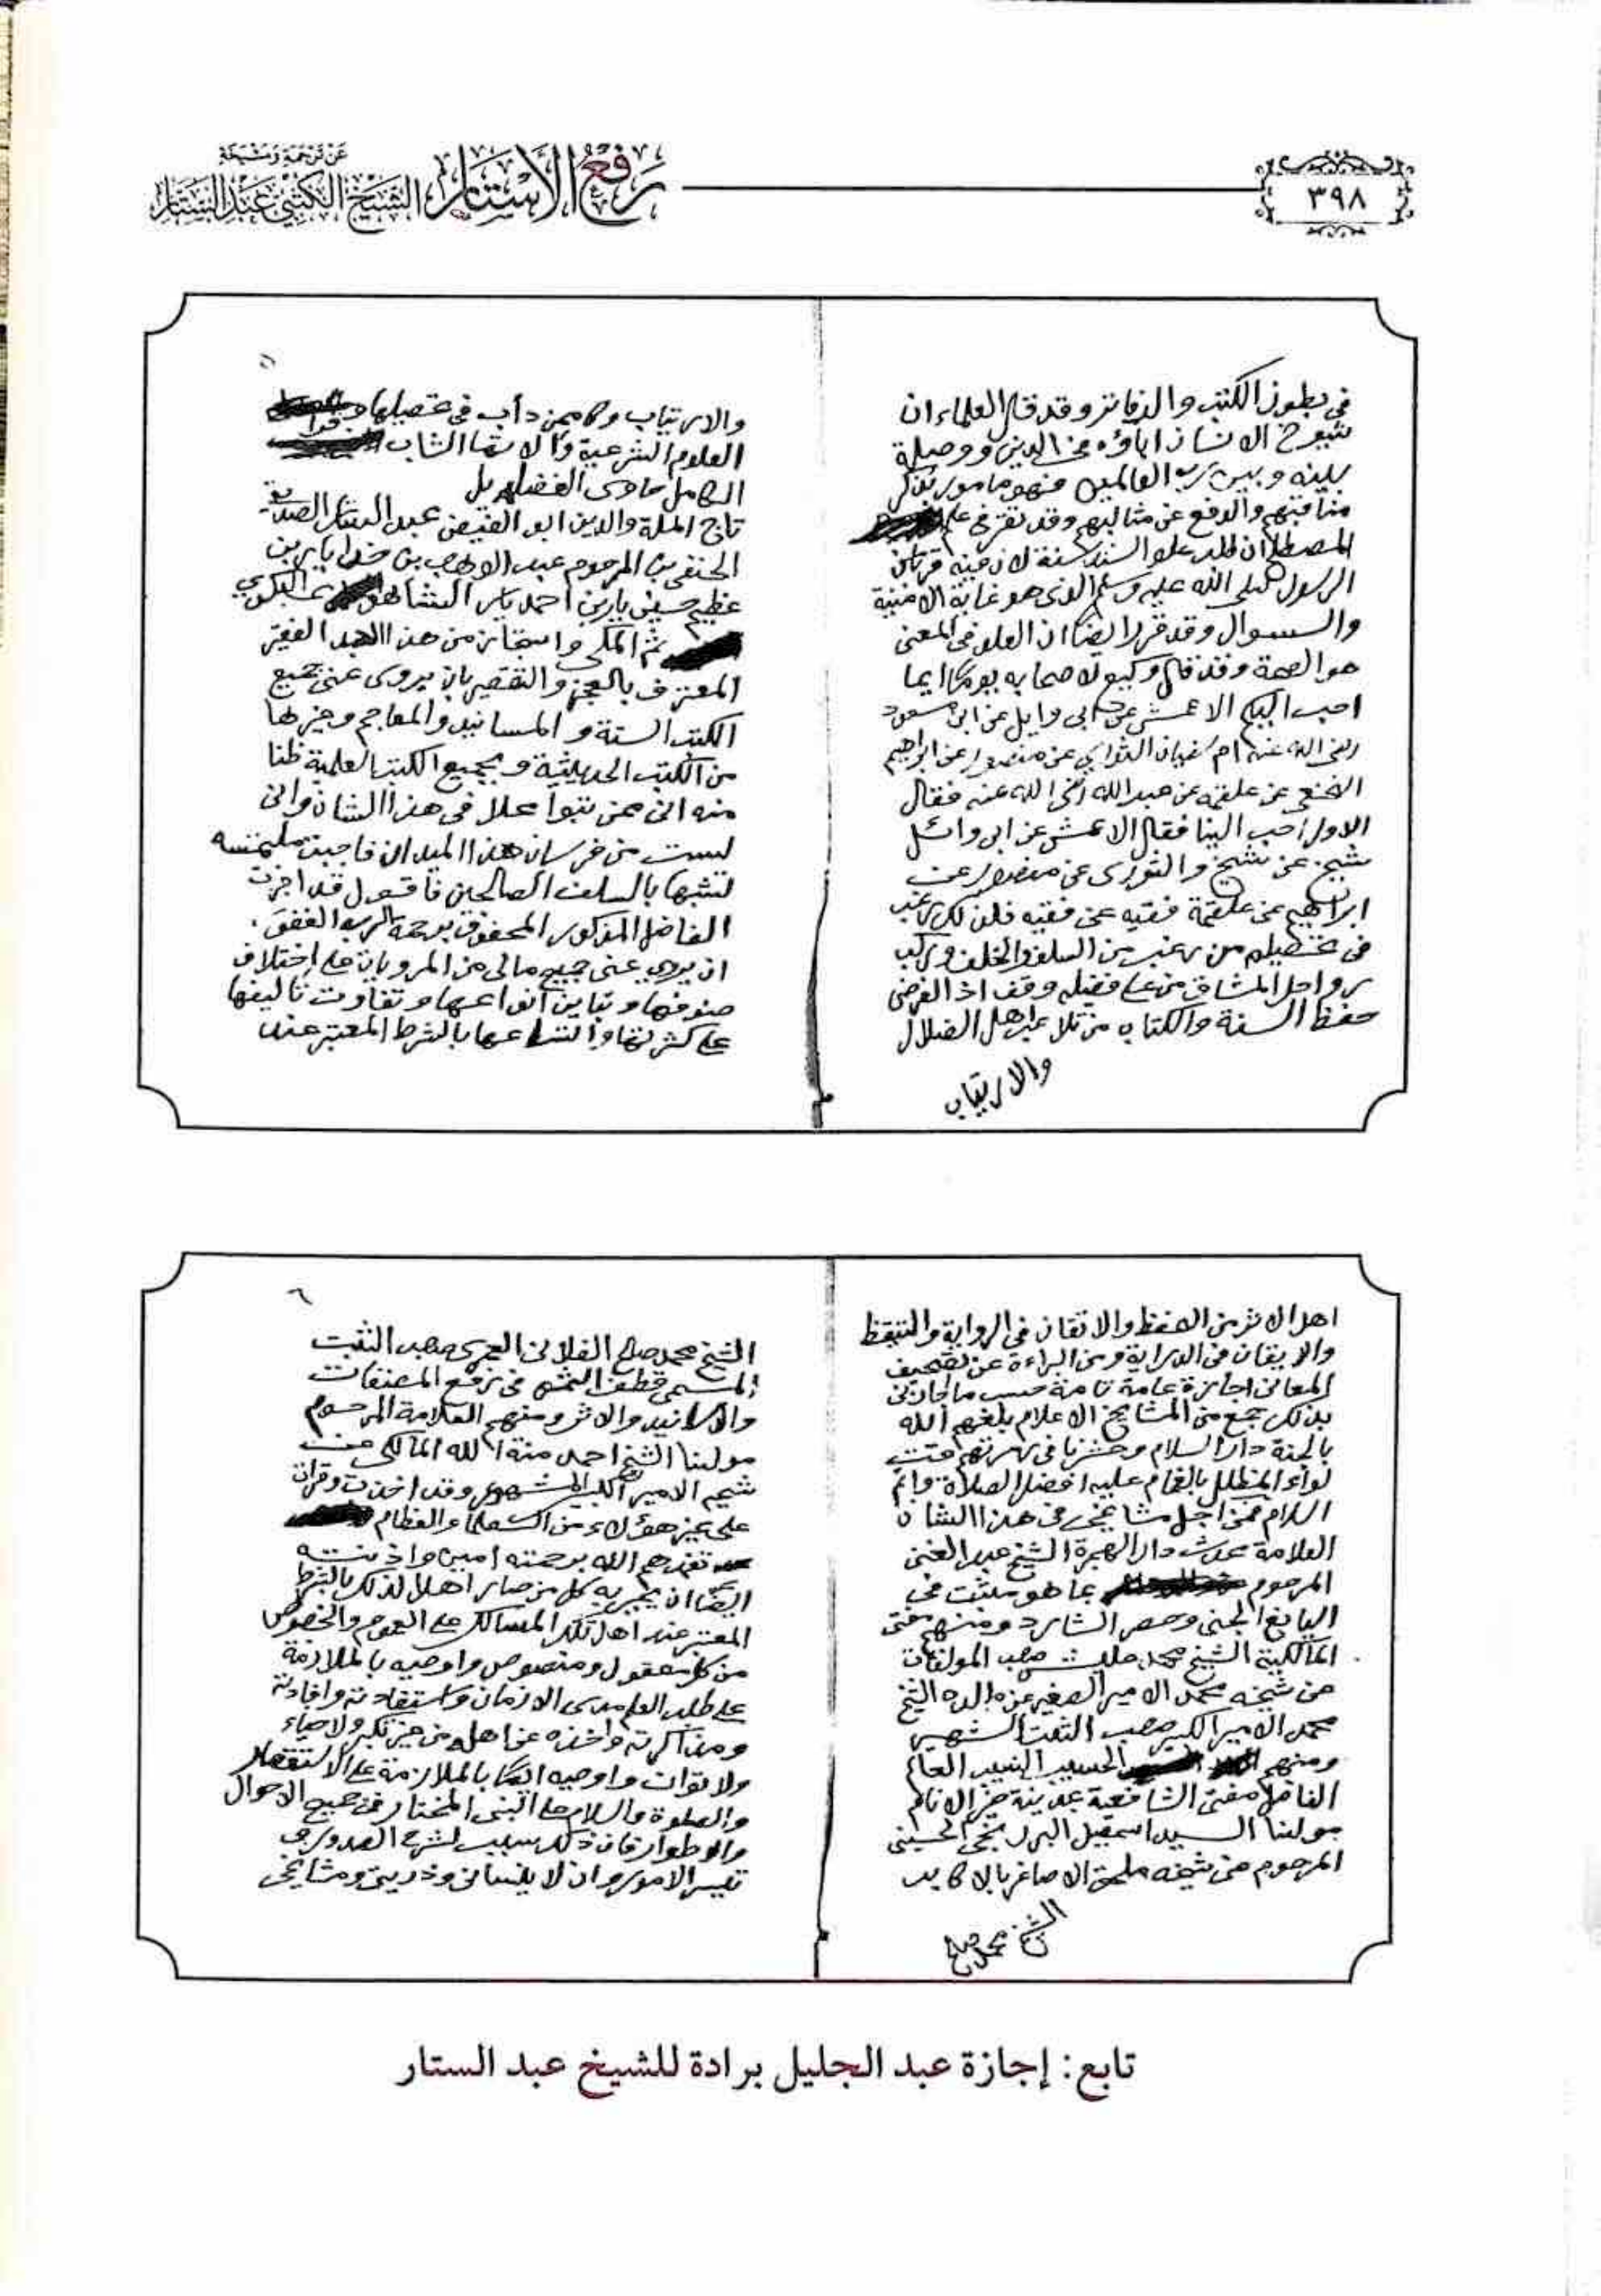 عن ترجمة ومشيخة
رفع الأستار الشيخ الكتبي عبد الستار
٣٩٨
في بطون الكتب والدفاتر وقد قال العلماء ان
شيوخ الانسان اباؤه في الدين ووصلة
بينه وبين رب العالمين فهو مامور بذكر
مناقبهم والدفع عن مثالبهم وقد تقرر في علم
المصطلح ان طلب علو السند سنة لان فيه قرباً من
الرسول صلى الله عليه وسلم الذى هو غاية الامنية
والسول وقد قرر ايضا ان العلو في المعنى
هو الصحة وقد قال وكيع لاصحابه يوما ايما
احب اليكم الاعمش عن ابى وايل عن ابن مسعود
رضى الله عنه ام سفيان الثوري عن منصور عن ابراهيم
النخعي عن علقمة عن عبد الله رضى الله عنه فقال
الاول احب الينا فقال الاعمش عن ابى وائل
شيخ عن شيخ والثورى عن منصور عن
ابراهيم عن علقمة فقيه عن فقيه فلذلك رغب
في تحصيله من رغب من السلف والخلف وركب
رواحل المشاق من علم فضيله وقف اذ الغرض
حفظ السنة والكتاب من تلاعب اهل الضلال
والارتياب
٥
والارتياب وكان ممن دأب في تحصيلها
العلوم الشرعية والاتقا الشاب
الكامل حاوى الفضايل
تاج الملة والدين ابو الفيض عبد الستار الصديقي
الحنفي بن المرحوم عبد الوهاب بن خدا يار بن
عظيم حسين يار بن احمد يار البكري
ثم المكي واستجاز من هذا العبد الفقير
المعترف بالعجز والتقصير بان يروى عني جميع
الكتب الستة والمسانيد والمعاجم وغيرها
من الكتب الحديثية وبجميع الكتب العلمية ظنا
منه انى ممن تبوأ محلا في هذا الشان وانى
لست من فرسان هذا الميدان فاجبته
تشبها بالسلف الصالحين فاقول قد اجزت
الفاضل المذكور المحفوف برحمة الرب الغفور
ان يروي عنى جميع مالى من المرويات على اختلاف
صنوفها وتباين انواعها وتفاوت تاليفها
على كثرتها واتساعها بالشرط المعتبر عند
اهل الاثر من الحفظ والاتقان في الرواية والتيقظ
والايقان في الدراية ومن البراءة عن تصحيف
المعاني اجازة عامة تامة حسب ما اجازني
بذلك جمع من المشايخ الاعلام بلغهم الله
بالجنة دار السلام وحشرنا في زمرتهم تحت
لواء المظلل بالغمام عليه افضل الصلاة واتم
السلام فمن اجل مشايخي في هذا الشان
العلامة محدث دار الهجرة الشيخ عبد الغني
المرحوم بما هو مثبت في
اليانع الجني وحصر الشارد ومنهم مفتى
المالكية الشيخ محمد عليش صاحب المولفات
عن شيخه محمد الامير الصغير عن والده الشيخ
محمد الامير الكبير صاحب الثبت الشهير
ومنهم الحسيب النسيب العالم
الفاضل مفتى الشافعية بمدينة خير الانام
مولنا السيد اسمعيل البرزنجى الحسيني
المرحوم عن شيخه ملحق الاصاغر بالاكابر
الشيخ محمد صالح
٦
الشيخ محمد صالح الفلاني العمري صاحب الثبت
المسمى قطف الثمر في رفع المصنفات
والاسانيد والاثر ومنهم العلامة المرحوم
مولنا الشيخ احمد منة الله المالكي عن
شيخه الامير الكبير المشهور وقد اخذت وقرات
على غير هؤلاء من العلماء والعظام
تغمدهم الله برحمته امين واذنته
ايضا ان يجيز به كل من صار اهلا لذلك بالشرط
المعتبر عند اهل تلك المسالك على العموم والخصوص
من كل معقول ومنصوص واوصيه بالملازمة
على طلب العلم مدى الازمان واستفادته وافادته
ومذاكرته واخذه عن اهله من غير تكبر ولا حياء
ولا توان واوصيه ايضا بالملازمة على الاستغفار
والصلوة والسلام على النبى المختار في جميع الاحوال
والاطوار فان ذلك سبب لشرح الصدور و
تيسير الامور وان لا ينساني وذريتى ومشايخى
تابع: إجازة عبد الجليل برادة للشيخ عبد الستار